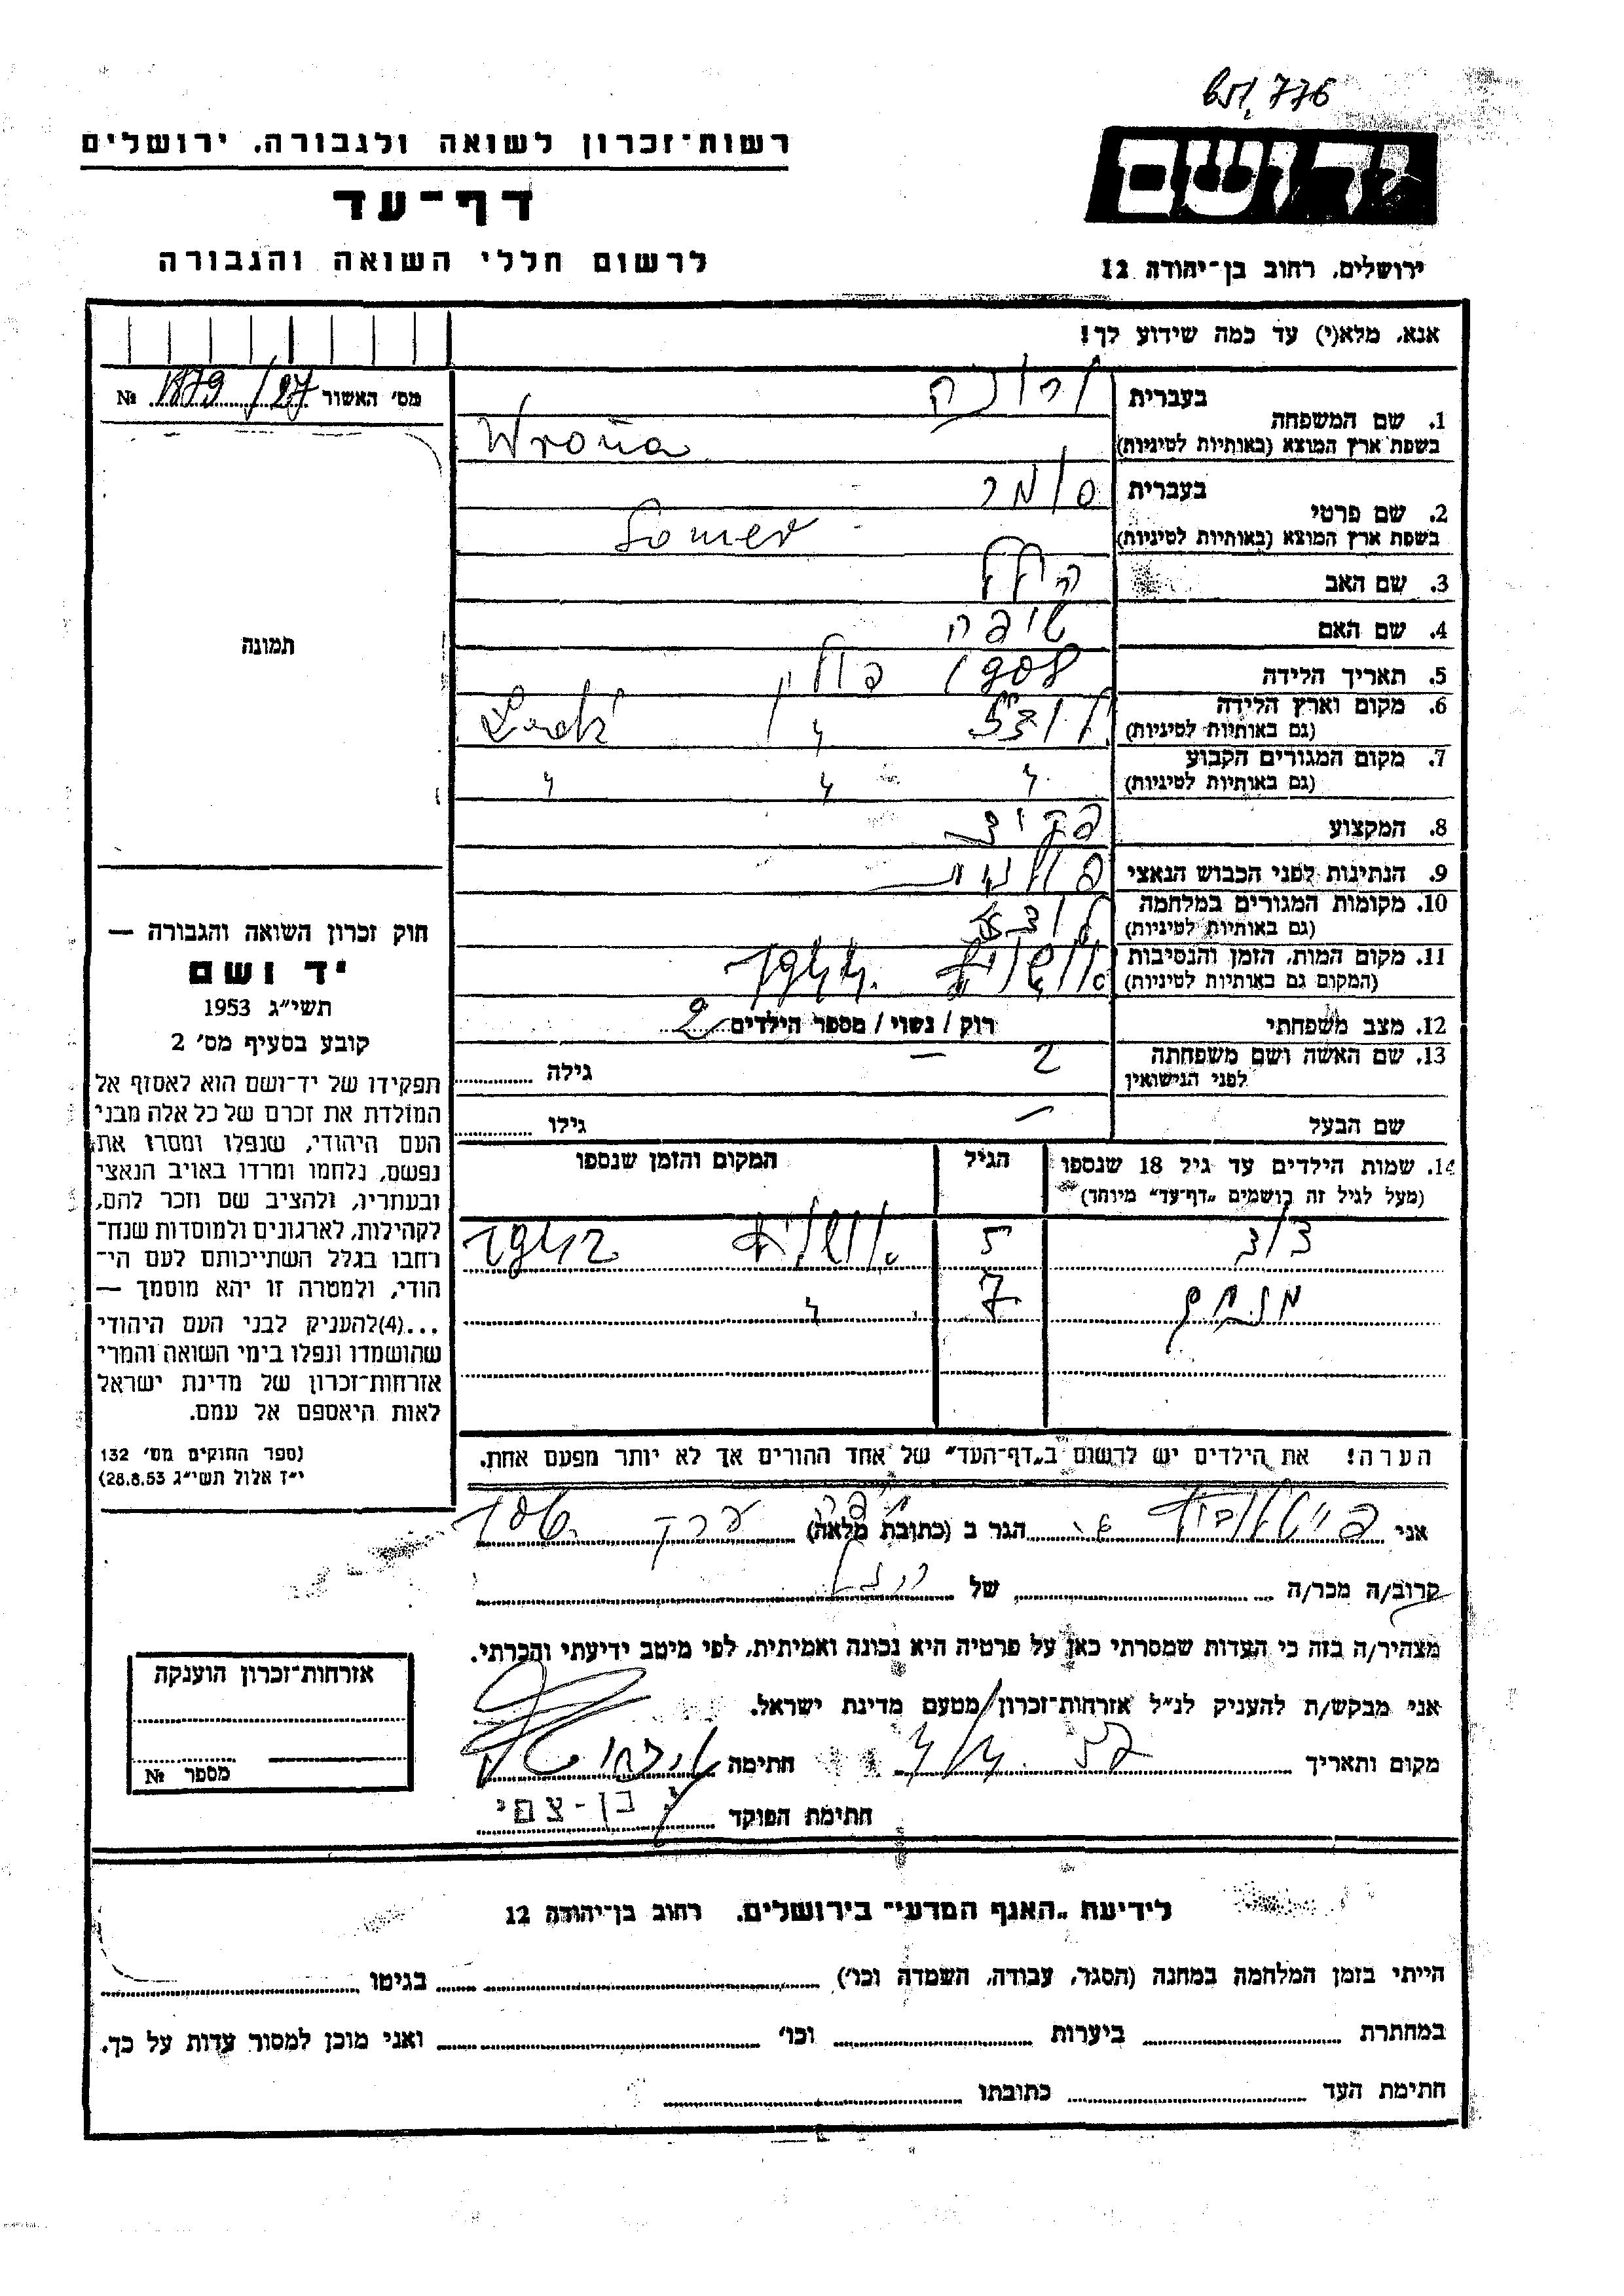 רשות־זכרון לשואה ולגבורה, ירושלים
דף־עד
לרשום חללי השואה והגבורה
יד ושם
ירושלים, רחוב בן־יהודה 12
אנא, מלא(י) עד כמה שידוע לך!
מס׳ האשור 1879/27 №
תמונה
חוק זכרון השואה והגבורה —
יד ושם
תשי״ג 1953
קובע בסעיף מס׳ 2
תפקידו של יד־ושם הוא לאסוף אל
המולדת את זכרם של כל אלה מבני
העם היהודי, שנפלו ומסרו את
נפשם, נלחמו ומרדו באויב הנאצי
ובעוזריו, ולהציב שם וזכר להם,
לקהילות, לארגונים ולמוסדות שנח־
רבו בגלל השתייכותם לעם הי־
הודי, ולמטרה זו יהא מוסמך —
...(4)להעניק לבני העם היהודי
שהושמדו ונפלו בימי השואה והמרי
אזרחות־זכרון של מדינת ישראל
לאות היאספם אל עמם.
(ספר החוקים מס׳ 132
י״ז אלול תשי״ג 28.8.53)
1. שם המשפחה בעברית ורונה
בשפת ארץ המוצא (באותיות לטיניות) Wrona
2. שם פרטי בעברית סומר
בשפת ארץ המוצא (באותיות לטיניות) Somer
3. שם האב הלל
4. שם האם
5. תאריך הלידה 1908 פולין
6. מקום וארץ הלידה
(גם באותיות לטיניות) לודז Lodz
7. מקום המגורים הקבוע
(גם באותיות לטיניות) " " "
8. המקצוע פקיד
9. הנתינות לפני הכבוש הנאצי פולנית
10. מקומות המגורים במלחמה
(גם באותיות לטיניות) לודז
11. מקום המות, הזמן והנסיבות
(המקום גם באותיות לטיניות) אושויץ 1944
12. מצב משפחתי רוק / נשוי / מספר הילדים 2
13. שם האשה ושם משפחתה
לפני הנישואין 2 — גילה
שם הבעל — גילו
14. שמות הילדים עד גיל 18 שנספו הגיל המקום והזמן שנספו
(מעל לגיל זה רושמים „דף־עד״ מיוחד)
5 אושויץ 1942
מנחם 7 "
הערה! את הילדים יש לרשום ב„דף־העד״ של אחד ההורים אך לא יותר מפעם אחת.
אני הגר ב (כתובת מלאה)
קרוב/ה מכר/ה של
מצהיר/ה בזה כי העדות שמסרתי כאן על פרטיה היא נכונה ואמיתית, לפי מיטב ידיעתי והכרתי.
אני מבקש/ת להעניק לנ״ל אזרחות־זכרון מטעם מדינת ישראל.
מקום ותאריך חתימה
חתימת הפוקד י. בן-צבי
אזרחות־זכרון הוענקה
מספר №
לידיעת „האגף המדעי״ בירושלים, רחוב בן־יהודה 12
הייתי בזמן המלחמה במחנה (הסגר, עבודה, השמדה וכו׳) בגיטו
במחתרת ביערות וכו׳ ואני מוכן למסור עדות על כך.
חתימת העד כתובתו